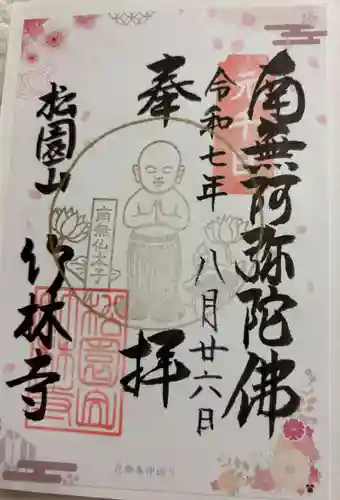 南無阿弥陀佛
令和七年
八月廿六日
奉拝
南無仏太子
松園山
竹林寺